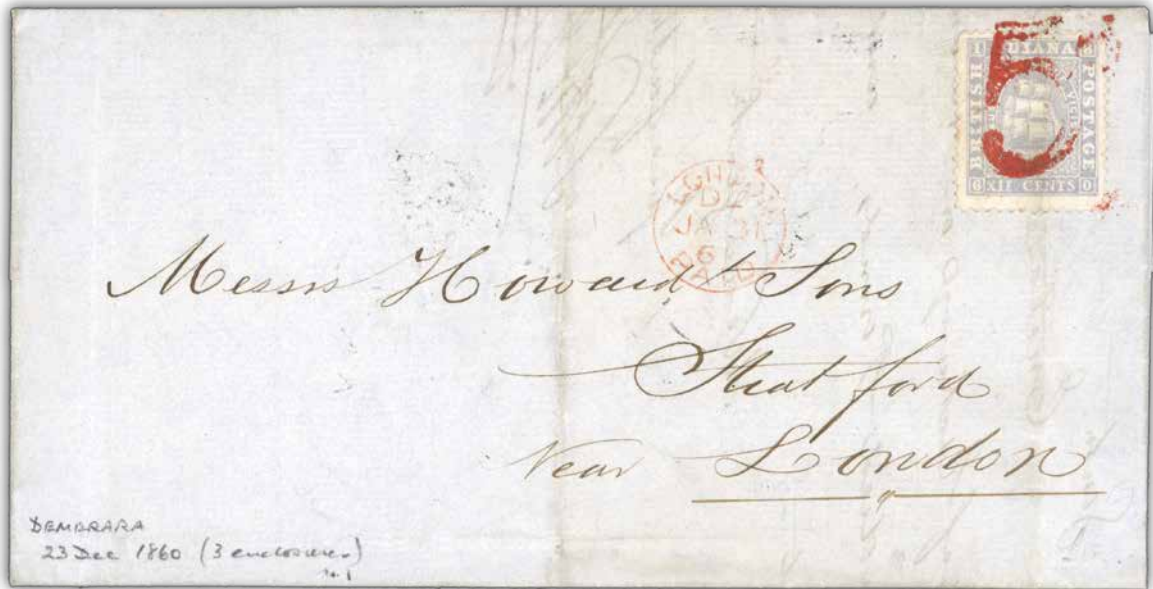 5
BRITISH GUIANA POSTAGE
XII CENTS
1 8 6 0
LONDON
JA 31
PAID
Messrs Howard Sons
Stratford
Near London
DEMERARA
23 Dec 1860 (3 enclosures)